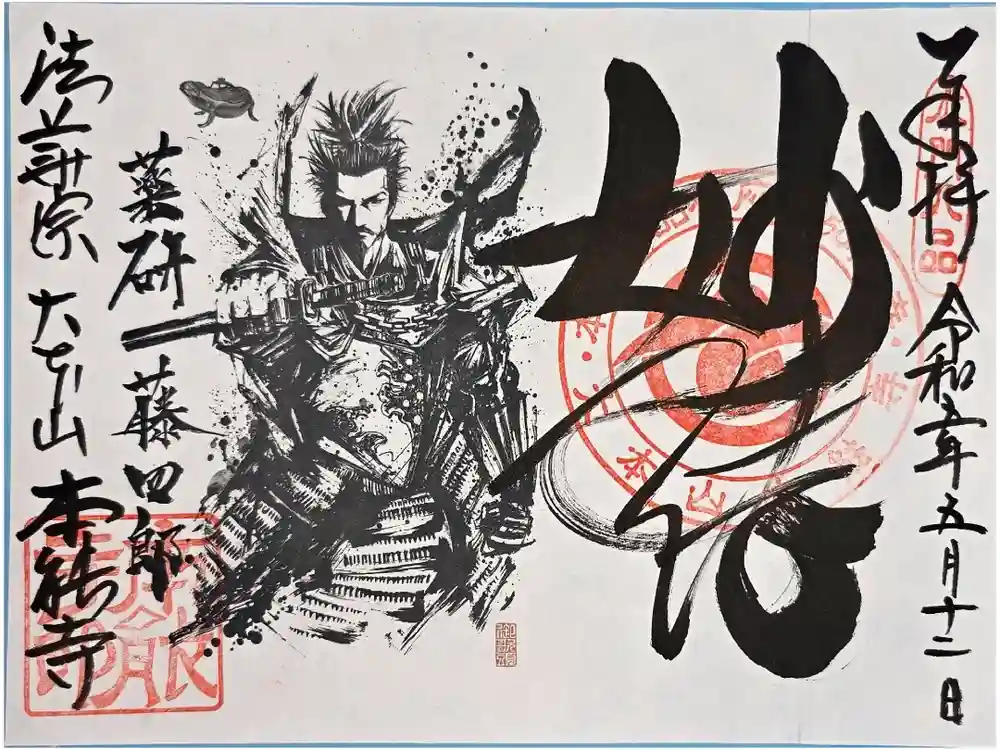 奉拝
令和五年五月十二日
妙法
薬研藤四郎
法華宗 大本山 本能寺